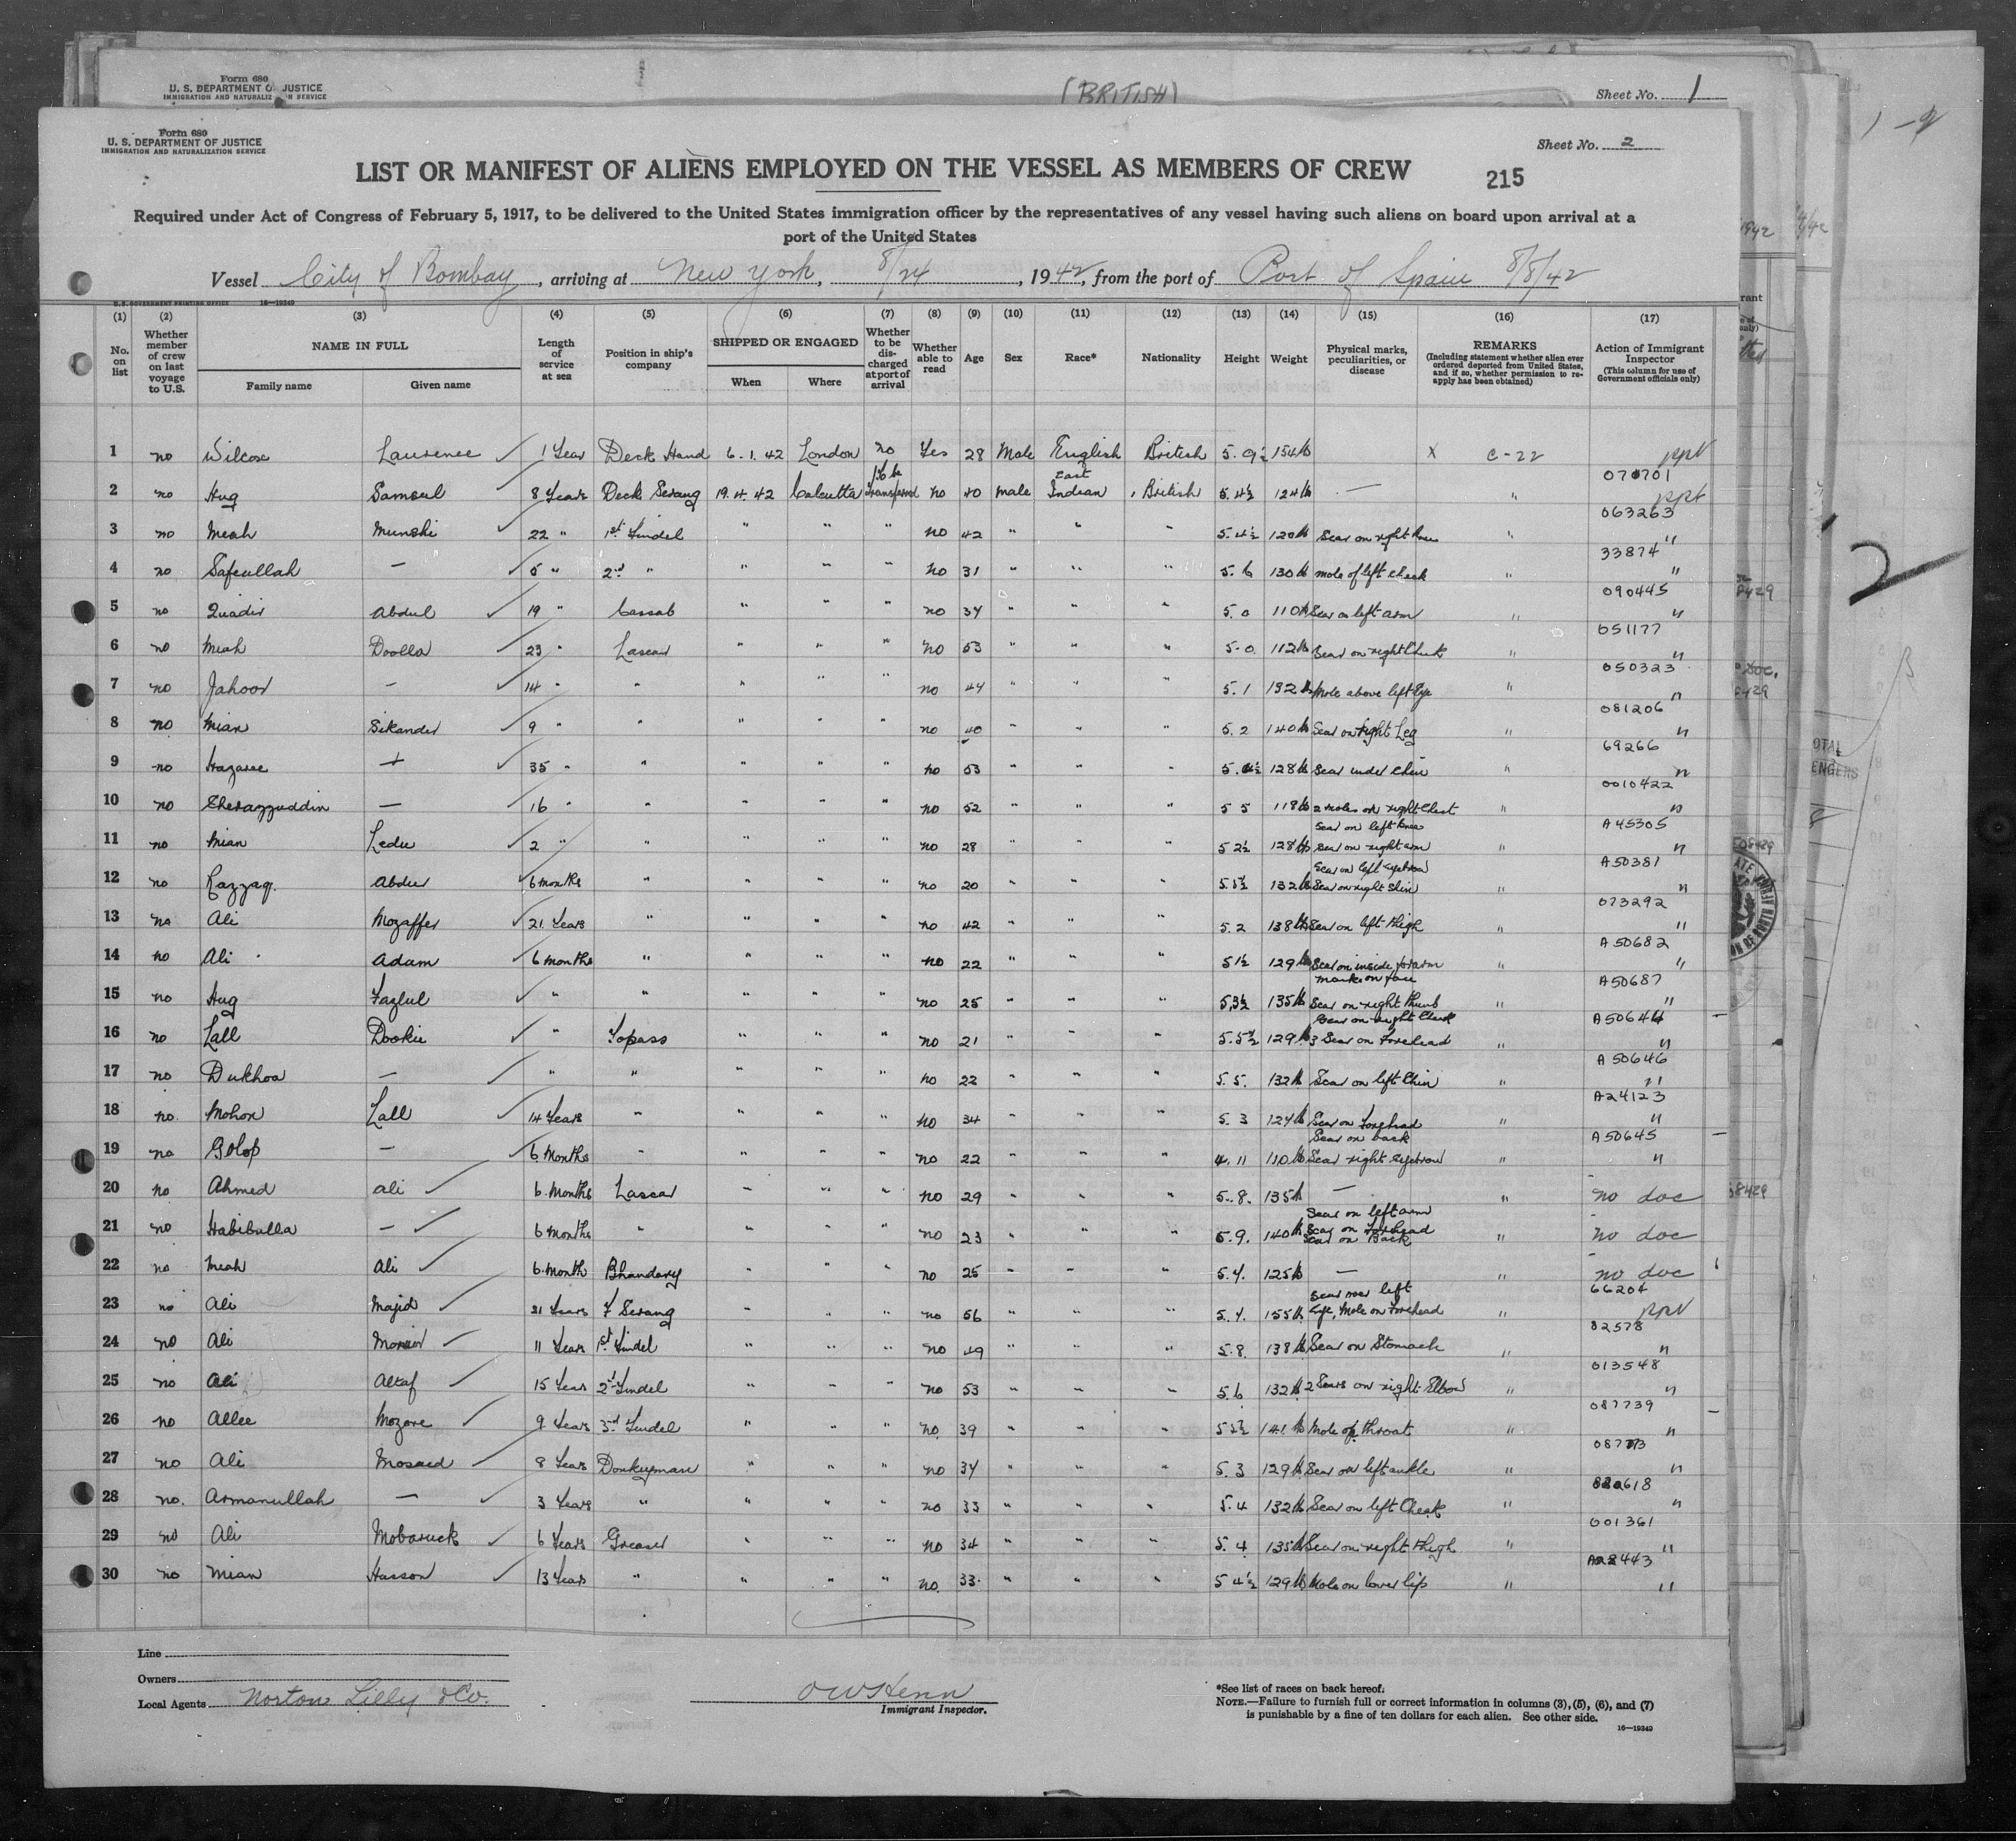 Form 680
U. S. DEPARTMENT OF JUSTICE
IMMIGRATION AND NATURALIZATION SERVICE
(BRITISH)
Sheet No. 1
Form 680
U. S. DEPARTMENT OF JUSTICE
IMMIGRATION AND NATURALIZATION SERVICE
Sheet No. 2
LIST OR MANIFEST OF ALIENS EMPLOYED ON THE VESSEL AS MEMBERS OF CREW
215
Required under Act of Congress of February 5, 1917, to be delivered to the United States immigration officer by the representatives of any vessel having such aliens on board upon arrival at a
port of the United States
Vessel City of Bombay, arriving at New York, 8/24, 1942, from the port of Port of Spain 8/8/42
U.S. GOVERNMENT PRINTING OFFICE 16—19349
(1) (2) (3) (4) (5) (6) (7) (8) (9) (10) (11) (12) (13) (14) (15) (16) (17)
No. on list
Whether member of crew on last voyage to U.S.
NAME IN FULL
Family name
Given name
Length of service at sea
Position in ship's company
SHIPPED OR ENGAGED
When
Where
Whether to be discharged at port of arrival
Whether able to read
Age
Sex
Race*
Nationality
Height
Weight
Physical marks, peculiarities, or disease
REMARKS
(Including statement whether alien ever ordered deported from United States, and if so, whether permission to reapply has been obtained)
Action of Immigrant Inspector
(This column for use of Government officials only)
1 no Wilcox Laurence ✓ 1 Year Deck Hand 6.1.42 London no Yes 28 Male English British 5.9½ 154 lb x C-22 ppt
070701
2 no Huq Samsul ✓ 8 Years Deck Serang 19.4.42 Calcutta To be transferred no 40 male East Indian British 5.4½ 124 lb — " ppt
063263
3 no Meah Munshi ✓ 22 " 1st Tindel " " " no 42 " " " 5.4½ 120 lb Scar on right knee " "
33874
4 no Safeullah — ✓ 5 " 2nd " " " " no 31 " " " 5.6 130 lb mole of left cheek " "
090445
5 no Quadir Abdul ✓ 19 " Cassab " " " no 34 " " " 5.0 110 lb Scar on left arm " "
051177
6 no Miah Doolla ✓ 23 " Lascar " " " no 53 " " " 5.0 112 lb Scar on right Cheek " "
050323
7 no Jahoor — ✓ 14 " " " " " no 44 " " " 5.1 132 lb Mole above left Eye " "
081206
8 no Mian Sikander ✓ 9 " " " " no 40 " " " 5.2 140 lb Scar on right Leg " "
69266
9 no Hazaree — ✓ 35 " " " " " no 53 " " " 128 lb Scar under Chin " "
0010422
10 no Sherazzuddin — ✓ 16 " " " " " no 52 " " " 5 5 118 lb 2 moles on right Chest " "
A45305
11 no Mian Ledu ✓ 2 " " " " " no 28 " " " 5 2½ 128 lb Scar on left knee Scar on right arm "
A50381
12 no Razzaq. Abdur ✓ 6 months " " " " no 20 " " " 132 lb Scar on left eyebrow Scar on right Shin " "
073292
13 no Ali Mozaffer ✓ 21 Years " " " " no 42 " " " 5.2 138 lb Scar on left thigh " "
A50682
14 no Ali Adam ✓ 6 months " " " " no 22 " " " 5 1½ 129 lb Scar on inside forarm " "
A50687
15 no Huq Fazlul ✓ " " " " " no 25 " " " 5.3½ 135 lb marks on face Scar on right thumb " "
16 no Lall Dookie ✓ " Topass " " " no 21 " " " 5.5½ 129 lb Scar on right Cheek 3 Scar on Forehead " "
A50646
17 no Dukhoa — ✓ " " " " " no 22 " " " 5.5. 132 lb Scar on left Chin " "
A24123
18 no. Mohon Lall ✓ 14 Years " " " " no 34 " " " 5.3 124 lb Scar on Forehead " "
A50645
19 no Golop — ✓ 6 Months " " " " no 22 " " " 4.11 110 lb Scar on back Scar right eyebrow " "
20 no Ahmed Ali ✓ 6. Months Lascar " " " no 29 " " " 5.8. 135 lb — " no doc
21 no Habibulla — ✓ 6 months " " " " no 23 " " " 5.9. 140 lb Scar on left arm Scar on Forehead Scar on Back " no doc
22 no Meah Ali ✓ 6.month Bhandary " " " no 25 " " " 5.4. 125 lb — " no doc
66204
23 no Ali Majid ✓ 21 Years F Serang " " " no 56 " " " 5.4. 155 lb Scar over left Eye, Mole on Forehead " ppt
82578
24 no Ali ✓ 11 Years 1st Tindel " " " no 49 " " " 5.8. 138 lb Scar on Stomach " "
013548
25 no Ali Altaf ✓ 15 Year 2nd Tindel " " " no 53 " " " 5.6 132 lb 2 Scars on right Elbow " "
087739
26 no Allee Mozare ✓ 9 Years 3rd Tindel " " " no. 39 " " " 141 lb Mole on throat " "
27 no Ali Mosaed ✓ 8 Years Donkeyman " " " no 34 " " " 5.3 129 lb Scar on left ankle " "
28 no. Asmanullah — ✓ 3 Years " " " " no 33 " " " 5.4 132 lb Scar on left Cheek " "
001361
29 no Ali Mobaruck ✓ 6 Years Greaser " " " no 34 " " " 5.4 135 lb Scar on right thigh " "
30 no Mian Hasson ✓ 13 Years " " " " no. 33 " " " 5 4½ 129 lb Mole on lower lip " "
Line
Owners
Local Agents Norton Lilly & Co.
Immigrant Inspector.
*See list of races on back hereof.
NOTE.—Failure to furnish full or correct information in columns (3), (5), (6), and (7)
is punishable by a fine of ten dollars for each alien. See other side.
16—19349
2